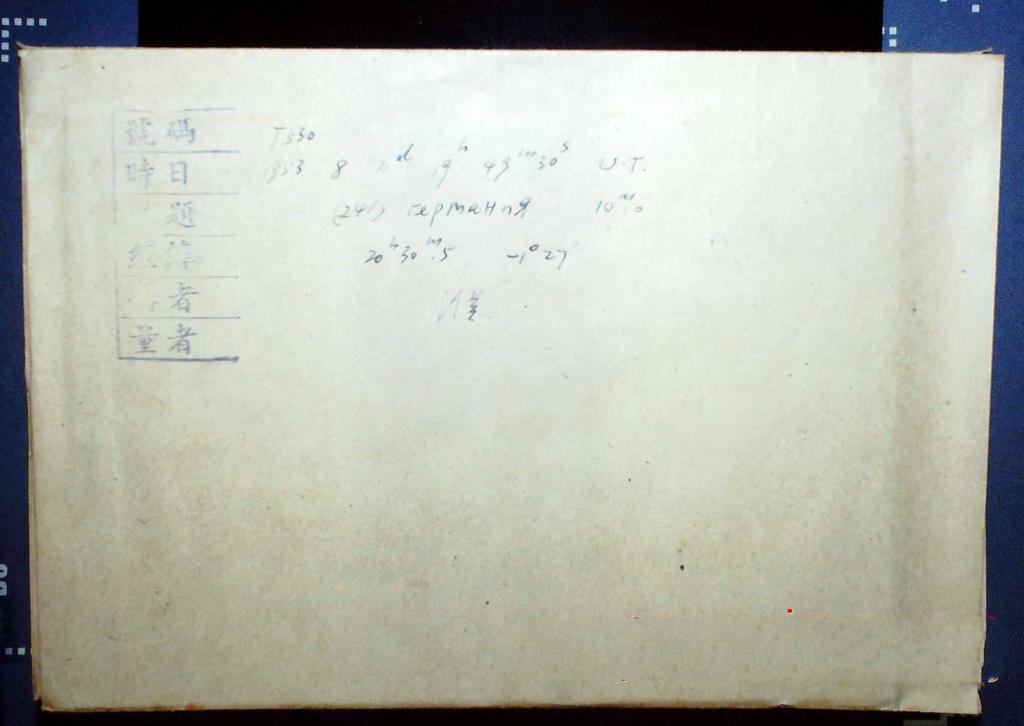 號碼 T530
時日 1953 8 11ᵈ 19ʰ 49ᵐ30ˢ U.T.
題 (241) германия 10ᵐ.0
20ʰ30ᵐ.5 -1°27'
者
量者